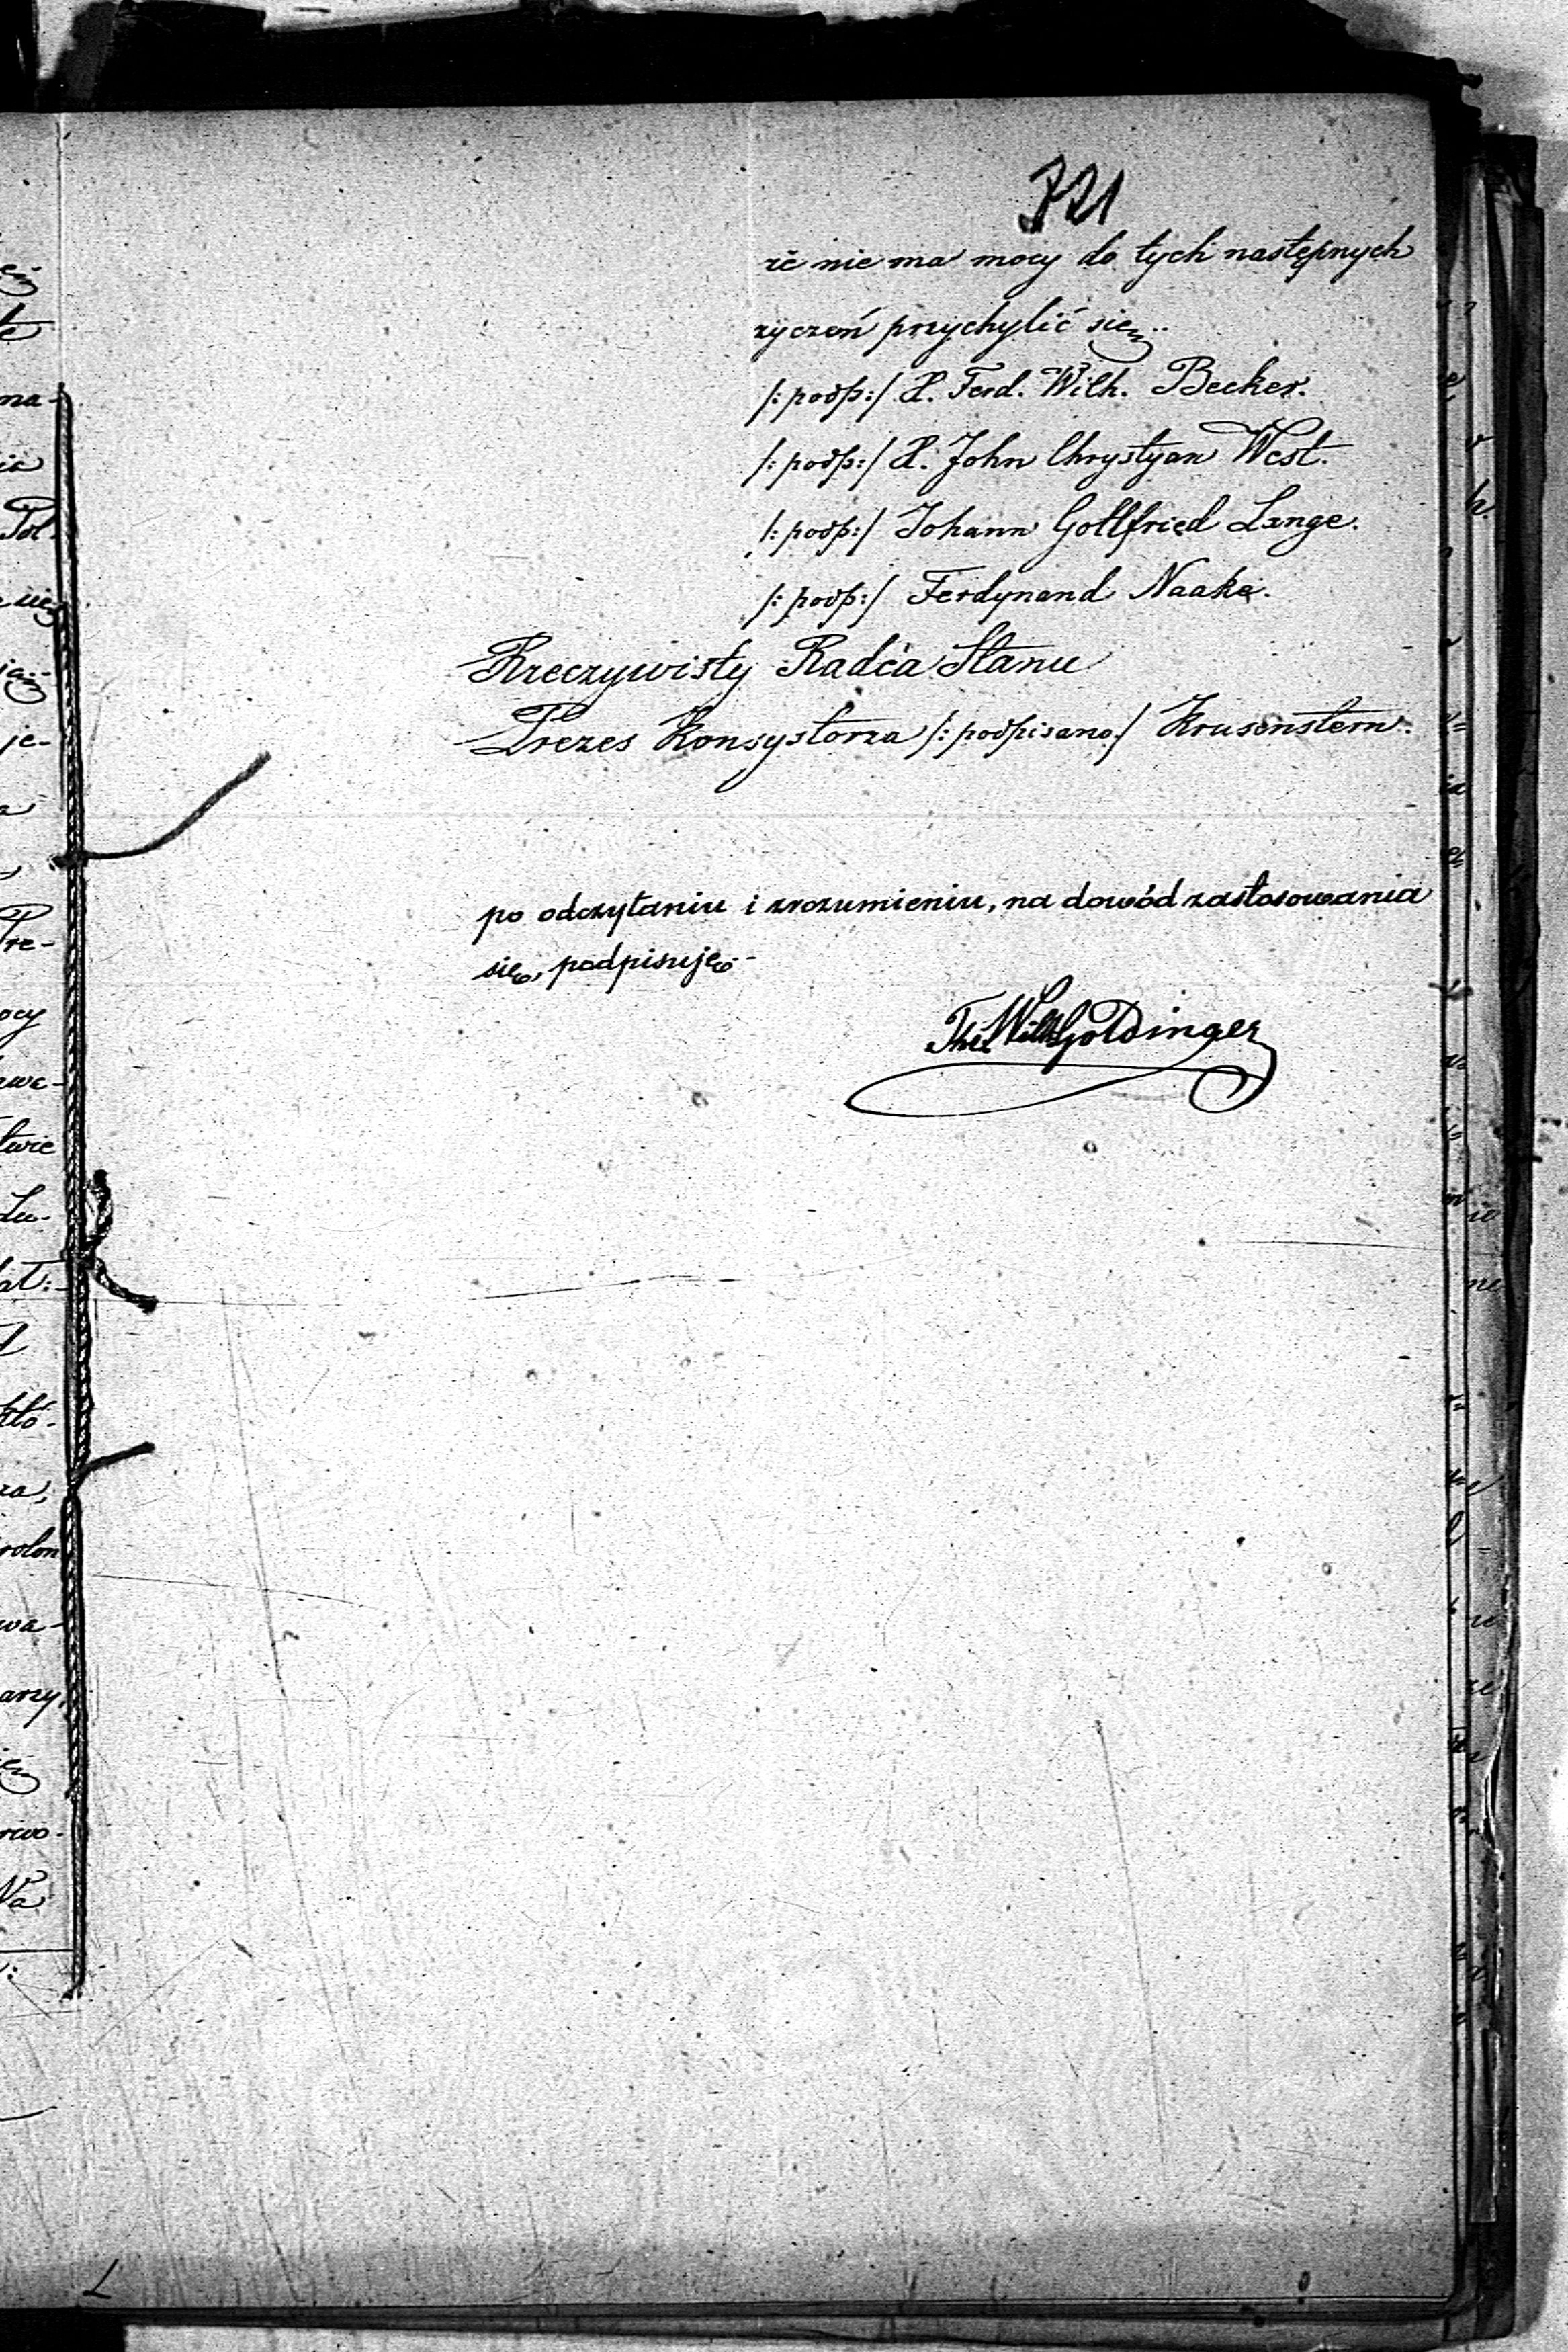 321
że nie ma mocy do tych następnych
życzeń przychylić się..
/: podp:/ X. Ferd. Wilh. Becker.
/: podp:/ X. John Chrystyan West.
/: podp:/ Johann Gottfried Lange.
/: podp:/ Ferdynand Naake.
Rzeczywisty Radca Stanu
Prezes Konsystorza /: podpisano:/ Krusenstern.
po odczytaniu i zrozumieniu, na dowód zastosowania
się, podpisuję.-
Wilh Goldinger